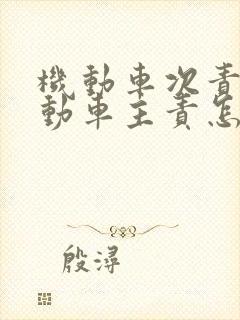 機動車次責
動車主責怎
殷潯